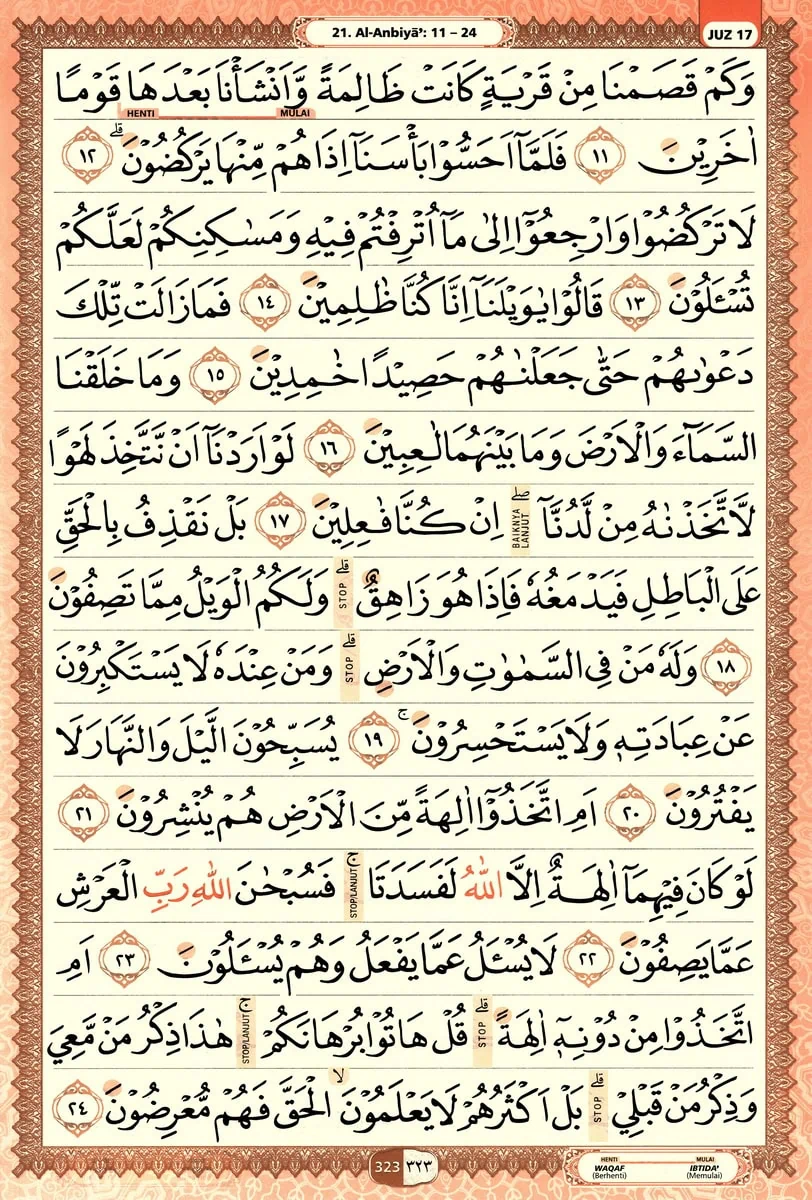 21. Al-Anbiyā': 11 – 24
JUZ 17
وَكَمْ قَصَمْنَا مِنْ قَرْيَةٍ كَانَتْ ظَالِمَةً وَّاَنْشَأْنَا بَعْدَهَا قَوْمًا
HENTI MULAI
اٰخَرِيْنَ ١١ فَلَمَّآ اَحَسُّوْا بَأْسَنَآ اِذَا هُمْ مِّنْهَا يَرْكُضُوْنَ ۗ ١٢
لَا تَرْكُضُوْا وَارْجِعُوْٓا اِلٰى مَآ اُتْرِفْتُمْ فِيْهِ وَمَسٰكِنِكُمْ لَعَلَّكُمْ
تُسْـَٔلُوْنَ ١٣ قَالُوْا يٰوَيْلَنَآ اِنَّا كُنَّا ظٰلِمِيْنَ ١٤ فَمَا زَالَتْ تِّلْكَ
دَعْوٰىهُمْ حَتّٰى جَعَلْنٰهُمْ حَصِيْدًا خٰمِدِيْنَ ١٥ وَمَا خَلَقْنَا
السَّمَاۤءَ وَالْاَرْضَ وَمَا بَيْنَهُمَا لٰعِبِيْنَ ١٦ لَوْ اَرَدْنَآ اَنْ نَّتَّخِذَ لَهْوًا
لَّاتَّخَذْنٰهُ مِنْ لَّدُنَّآ ۖ BAIKNYA LANJUT اِنْ كُنَّا فٰعِلِيْنَ ١٧ بَلْ نَقْذِفُ بِالْحَقِّ
عَلَى الْبَاطِلِ فَيَدْمَغُهٗ فَاِذَا هُوَ زَاهِقٌ ۗ STOP وَلَكُمُ الْوَيْلُ مِمَّا تَصِفُوْنَ
١٨ وَلَهٗ مَنْ فِى السَّمٰوٰتِ وَالْاَرْضِ ۗ STOP وَمَنْ عِنْدَهٗ لَا يَسْتَكْبِرُوْنَ
عَنْ عِبَادَتِهٖ وَلَا يَسْتَحْسِرُوْنَ ۚ ١٩ يُسَبِّحُوْنَ الَّيْلَ وَالنَّهَارَ لَا
يَفْتُرُوْنَ ٢٠ اَمِ اتَّخَذُوْٓا اٰلِهَةً مِّنَ الْاَرْضِ هُمْ يُنْشِرُوْنَ ٢١
لَوْ كَانَ فِيْهِمَآ اٰلِهَةٌ اِلَّا اللّٰهُ لَفَسَدَتَا ۚ STOP/LANJUT فَسُبْحٰنَ اللّٰهِ رَبِّ الْعَرْشِ
عَمَّا يَصِفُوْنَ ٢٢ لَا يُسْـَٔلُ عَمَّا يَفْعَلُ وَهُمْ يُسْـَٔلُوْنَ ٢٣ اَمِ
اتَّخَذُوْا مِنْ دُوْنِهٖٓ اٰلِهَةً ۗ STOP قُلْ هَاتُوْا بُرْهَانَكُمْ ۚ STOP/LANJUT هٰذَا ذِكْرُ مَنْ مَّعِيَ
وَذِكْرُ مَنْ قَبْلِيْ ۗ STOP بَلْ اَكْثَرُهُمْ لَا يَعْلَمُوْنَ ۙ الْحَقَّ فَهُمْ مُّعْرِضُوْنَ ٢٤
323 ٣٢٣
HENTI MULAI
WAQAF IBTIDA'
(Berhenti) (Memulai)